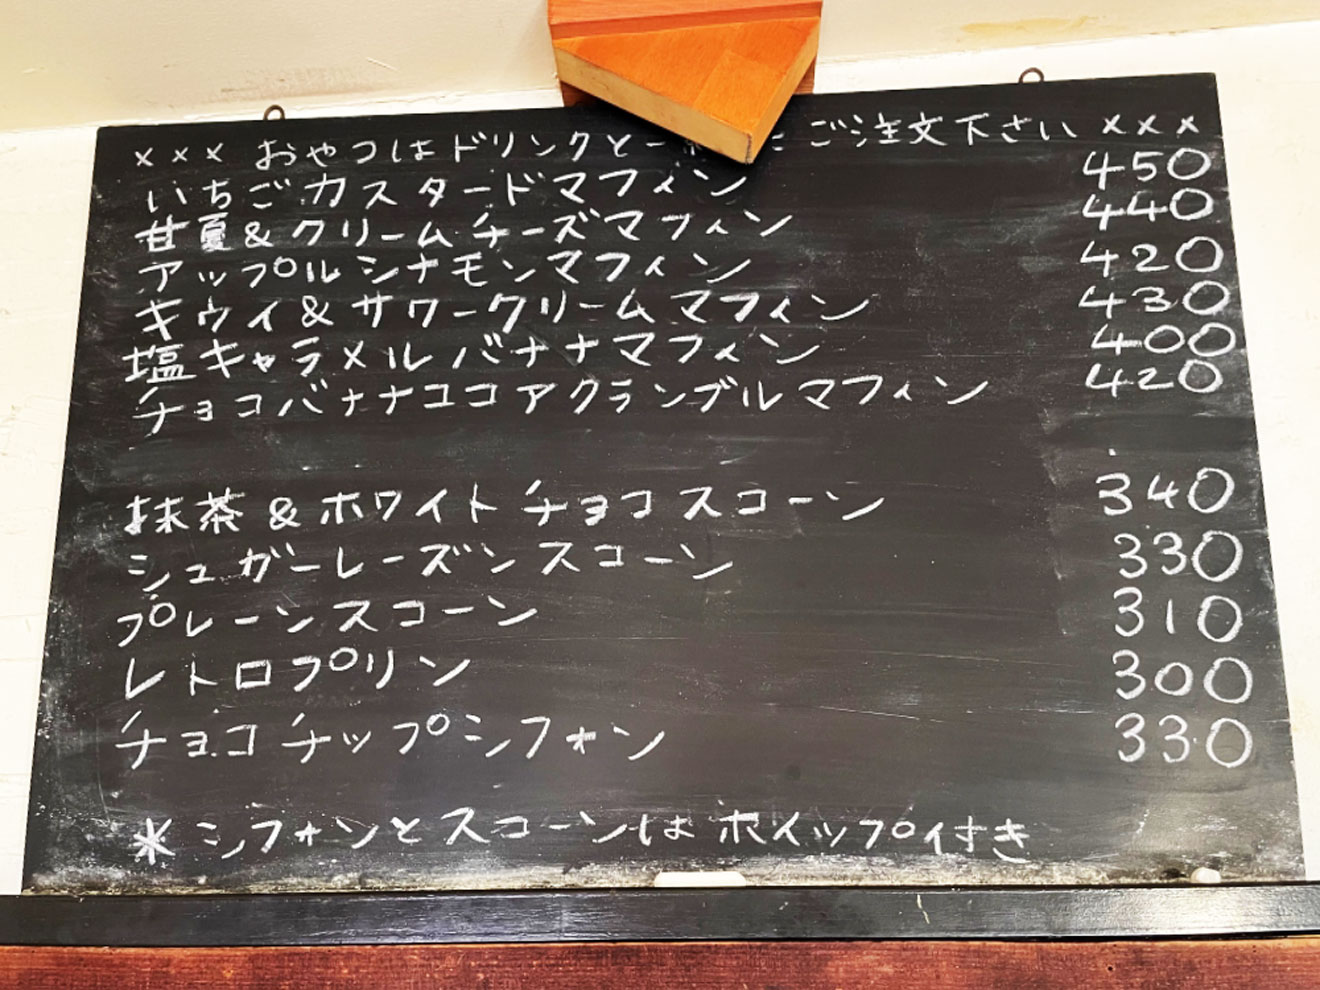 ××× おやつはドリンクと一 ご注文下さい ×××
いちごカスタードマフィン 450
甘夏&クリームチーズマフィン 440
アップルシナモンマフィン 420
キウイ&サワークリームマフィン 430
塩キャラメルバナナマフィン 400
チョコバナナココアクランブルマフィン 420
抹茶&ホワイトチョコスコーン 340
シュガーレーズンスコーン 330
プレーンスコーン 310
レトロプリン 300
チョコチップシフォン 330
*シフォンとスコーンはホイップ付き